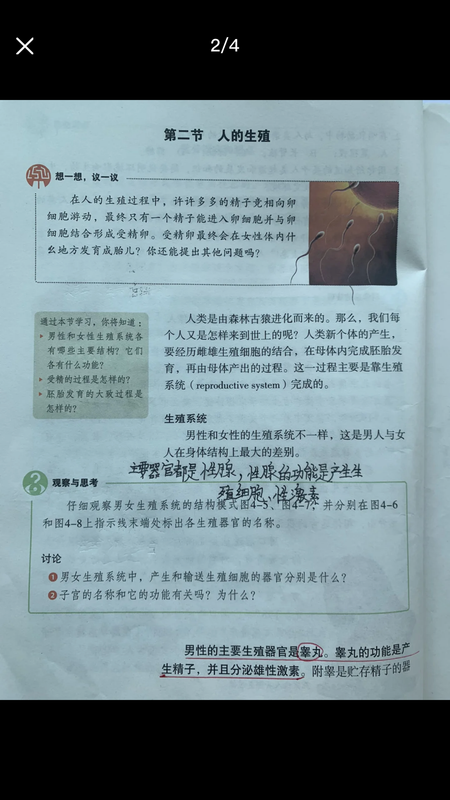 2/4
第二节 人的生殖
想一想，议一议
在人的生殖过程中，许许多多的精子竞相向卵
细胞游动，最终只有一个精子能进入卵细胞并与卵
细胞结合形成受精卵。受精卵最终会在女性体内什
么地方发育成胎儿？你还能提出其他问题吗？
通过本节学习，你将知道：
▸ 男性和女性生殖系统各
有哪些主要结构？它们
各有什么功能？
▸ 受精的过程是怎样的？
▸ 胚胎发育的大致过程是
怎样的？
人类是由森林古猿进化而来的。那么，我们每
个人又是怎样来到世上的呢？人类新个体的产生，
要经历雌雄生殖细胞的结合，在母体内完成胚胎发
育，再由母体产出的过程。这一过程主要是靠生殖
系统（reproductive system）完成的。
生殖系统
男性和女性的生殖系统不一样，这是男人与女
人在身体结构上最大的差别。
主要器官都是性腺，性腺的功能是产生生
殖细胞，性激素
观察与思考
仔细观察男女生殖系统的结构模式图4-5、图4-7，并分别在图4-6
和图4-8上指示线末端处标出各生殖器官的名称。
讨论
1 男女生殖系统中，产生和输送生殖细胞的器官分别是什么？
2 子宫的名称和它的功能有关吗？为什么？
男性的主要生殖器官是睾丸。睾丸的功能是产
生精子，并且分泌雄性激素。附睾是贮存精子的器